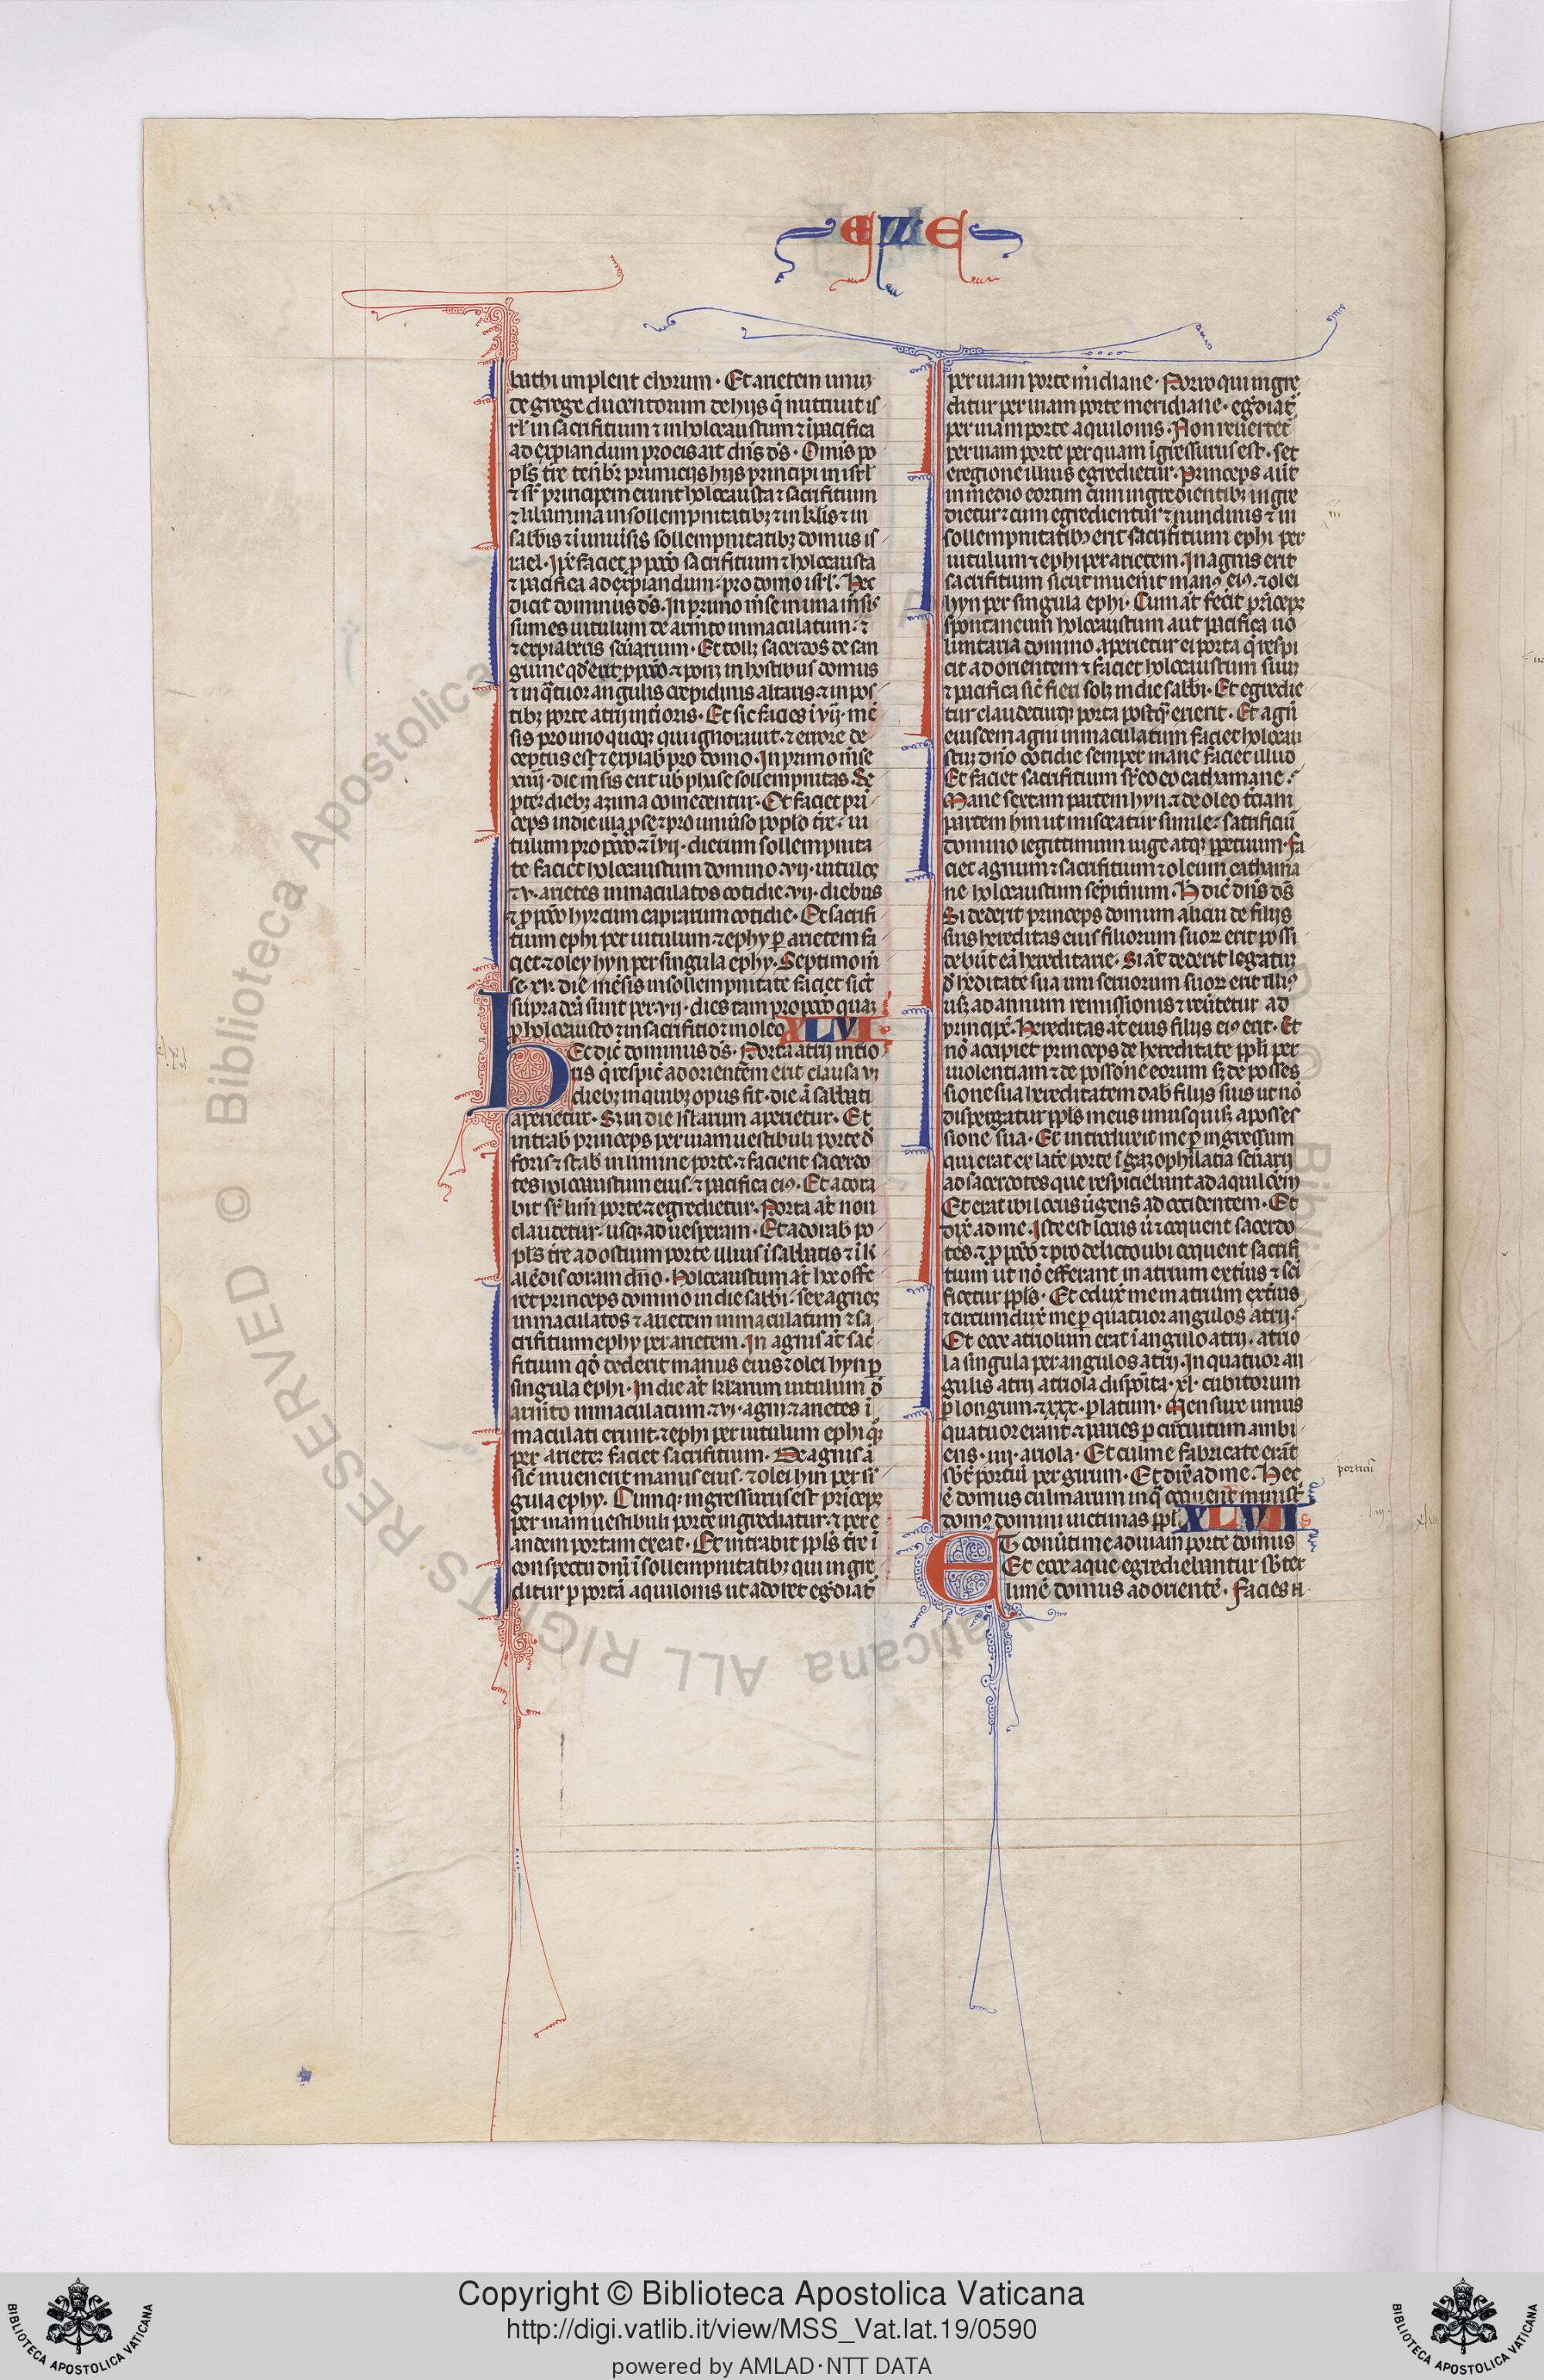 EZE
bathi implent chorum · Et arietem unuʒ
de grege ducentorum de hijs q̄ nutriunt is
rł in sacrifitium ⁊ in holocaustum ⁊ ī pacifica
ad expiandum pro eis ait dn̄s ds̄ · Omnis po
pls̄ tr̄e tenebr̄ primicijs hijs principi in isrł
⁊ sr̄ principem erunt holocausta ⁊ sacrifitium
⁊ libamina in sollempnitatibꝫ ⁊ in kl̄is ⁊ in
sabb̄is ⁊ ī uniūsis sollempnitatibꝫ domus is
rael · Ip̄e faciet p̄ pctō sacrifitium ⁊ holocausta
⁊ pacifica ad expiandum · pro domo isrł · Hec
dicit dominus ds̄ · In primo m̄se in una m̄sis
sumes uitulum de arm̄to inmaculatum · ⁊
⁊ expiaberis sc̄uarium · Et tollꝫ sacerdos de san
guine qd̄ erit p̄ pctō · ⁊ ponꝫ in hostibus domus
⁊ in q̄tuor angulis crepidinis altaris · ⁊ in pos
tibꝫ porte atrij int̄ioris · Et sic facies ī vij · mē
sis pro uno quoqꝫ qui ignorauit · ⁊ errore de
ceptus est ⁊ expiab̄ pro domo · In primo m̄se
xiiij · die m̄sis erit uob̄ phase sollempnitas · Se
ptēꝫ diebꝫ azima comedentur · Et faciet prī
ceps in die illa p̄ se ⁊ pro uniūso poplo tr̄e · ui
tulum pro pctō ⁊ ī vij · dierum sollempnita
te faciet holocaustum domino · vij · uitulos
⁊ v · arietes inmaculatos cotidie · vij · diebus
⁊ p̄ pctō hyrcum caprarum cotidie · Et sacrifi
tium ephi per uitulum · ⁊ ephy p̄ arietem fa
ciet · ⁊ oley hyn per singula ephy · Septimo m̄
se · xv · die mēsis in sollempnitate faciet sict̄
supra dc̄a sunt per · vij · dies tam pro pctō quaʒ
p̄ holocausto ⁊ in sacrifitio ⁊ in oleo XLVI
Hec dic̄ dominus ds̄ · Porta atrij intio
ris q̄ respic̄ ad orientem erit clausa vj
diebꝫ in quibꝫ opus fit · die ā sabbati
aperietur · Sꝫ in die kl̄arum aperietur · Et
intrab̄ princeps per uiam uestibuli porte d̄
foris ⁊ stab̄ in limine porte · ⁊ facient sacerdo
tes holocaustum eius · ⁊ pacifica ei⁹ · Et adora
bit sr̄ lim̄ porte · ⁊ egredietur · Porta at̄ non
claudetur · usqꝫ ad uesperam · Et adorab̄ po
pls̄ tr̄e ad ostium porte illius ī sabbatis ⁊ ī k
alēdis coram dn̄o · Holocaustum at̄ hoc offe
ret princeps domino in die sabb̄i · sex agnos
inmaculatos ⁊ arietem inmaculatum ⁊ sa
crifitium ephy per arietem · In agnis at̄ sac̄
fitium qd̄ dederit manus eius ⁊ olei hyn p̄
singula ephi · In die at̄ kl̄arum uitulum d̄
arm̄to inmaculatum ⁊ vj · agni ⁊ arietes ī
maculati erunt · ⁊ ephi per uitulum ephi qꝫ
per arieteʒ faciet sacrifitium · De agnis ā
sic̄ inuenerit manus eius · ⁊ olei hin per sī
gula ephy · Cumqꝫ ingressurus est princeps
per uiam uestibuli porte ingrediatur · ⁊ per e
andem portam exeat · Et intrabit ipls̄ tr̄e ī
conspectu dn̄i ī sollempnitatibꝫ qui in gre
ditur p̄ portā aquilonis ut adoret eḡdiat̄
per uiam porte midiane · Porro qui ingre
ditur per uiam porte meridiane · eḡdiat̄
per uiam porte aquilonis · Non reuertet̄
per uiam porte per quam īgressurus est · set
e regione illius egredietur · Princeps aut̄
in medio eorum cum ingredientibꝫ ingre
dietur ⁊ cum egredientur ⁊ nundinis ⁊ in
sollempnitatibꝫ erit sacrifitium ephi per
uitulum ⁊ ephi per arietem · In agnis erit
sacrifitium sicut inuen̄it man⁹ ei⁹ · ⁊ olei
hyn per singula ephi · Cum at̄ fec̄it princeps
spontaneum holocaustum aut pacifica uo
luntaria domino aperietur ei porta q̄ respi
cit ad orientem ⁊ faciet holocaustum suuʒ
⁊ pacifica sic̄ fieri solꝫ in die sabb̄i · Et egredie
tur claudeturqꝫ porta postq̄ exierit · Et agn̄
eiusdem agni inmaculatum faciet holocau
stuʒ dn̄o cotidie semper mane faciet illud
Et faciet sacrifitium sr̄ eo eo cathamane ·
Mane sextam partem hyn · ⁊ de oleo tc̄iam
partem hin ut misceatur simile · satrificiū
domino legittimum iuge atqꝫ ppetuum · Fa
ciet agnum ⁊ sacrifitium ⁊ oleum cathama
ne holocaustum sēpit̄num · H dic̄ dn̄s ds̄
Si dederit princeps domum alicui de filijs
suis hereditas eius filiorum suoꝝ erit possi
debūt eā hereditarie · Si at̄ dederit legatuʒ
d̄ h̄editate sua uni seruorum suoꝝ erit illi⁹
usqꝫ ad annum remissionis ⁊ reūtetur ad
principē · Hereditas at̄ eius filijs ei⁹ erit · Et
nō accipiet princeps de hereditate ppl̄i per
uiolentiam ⁊ de possone eorum sꝫ de posses
sione sua hereditatem dab̄ filijs suis ut nō
dispergatur ppls̄ meus unusquisqꝫ a posses
sione sua · Et introduxit me p̄ ingressum
qui erat ex latē porte ī gazophilatia sc̄uarij
ad sacerdotes que respiciebant ad aquilōem
Et erat ibi locus ūgens ad occidentem · Et
dix̄ ad me · Iste est locus ū coquent sacerdo
tes · ⁊ p̄ pctō ⁊ pro delicto ubi coquent sacrifi
tium ut nō efferant in atrium ext̄ius ⁊ sc̄i
ficetur ppls̄ · Et edux̄ me in atrium ext̄ius
⁊ circumdux̄ me p̄ quatuor angulos atrij ·
Et ecce atriolum erat ī angulo atrij · atrio
la singula per angulos atrij · In quatuor an
gulis atrij atriola disposita · xl · cubitorum
p̄ longum · ⁊ xxx · p̄ latum · Mensure unius
quatuor erant · ⁊ paries p̄ circuitum ambi
ens · iiij · ariola · Et culine fabricate erāt
sbt̄ porticū per girum · Et dix̄ ad me · Hec
ē domus culinarum in q̄ coquent minist̄
dom⁹ domini uictimas ppl̄i XLVII
Et conūtit me ad uiam porte domus
Et ecce aque egrediebantur sbt̄er
limē domus ad orientē · Facies n̄
porticū
Copyright © Biblioteca Apostolica Vaticana
http://digi.vatlib.it/view/MSS_Vat.lat.19/0590
powered by AMLAD·NTT DATA
BIBLIOTECA APOSTOLICA VATICANA
BIBLIOTECA APOSTOLICA VATICANA
© Biblioteca Apostolica Vaticana ALL RIGHTS RESERVED